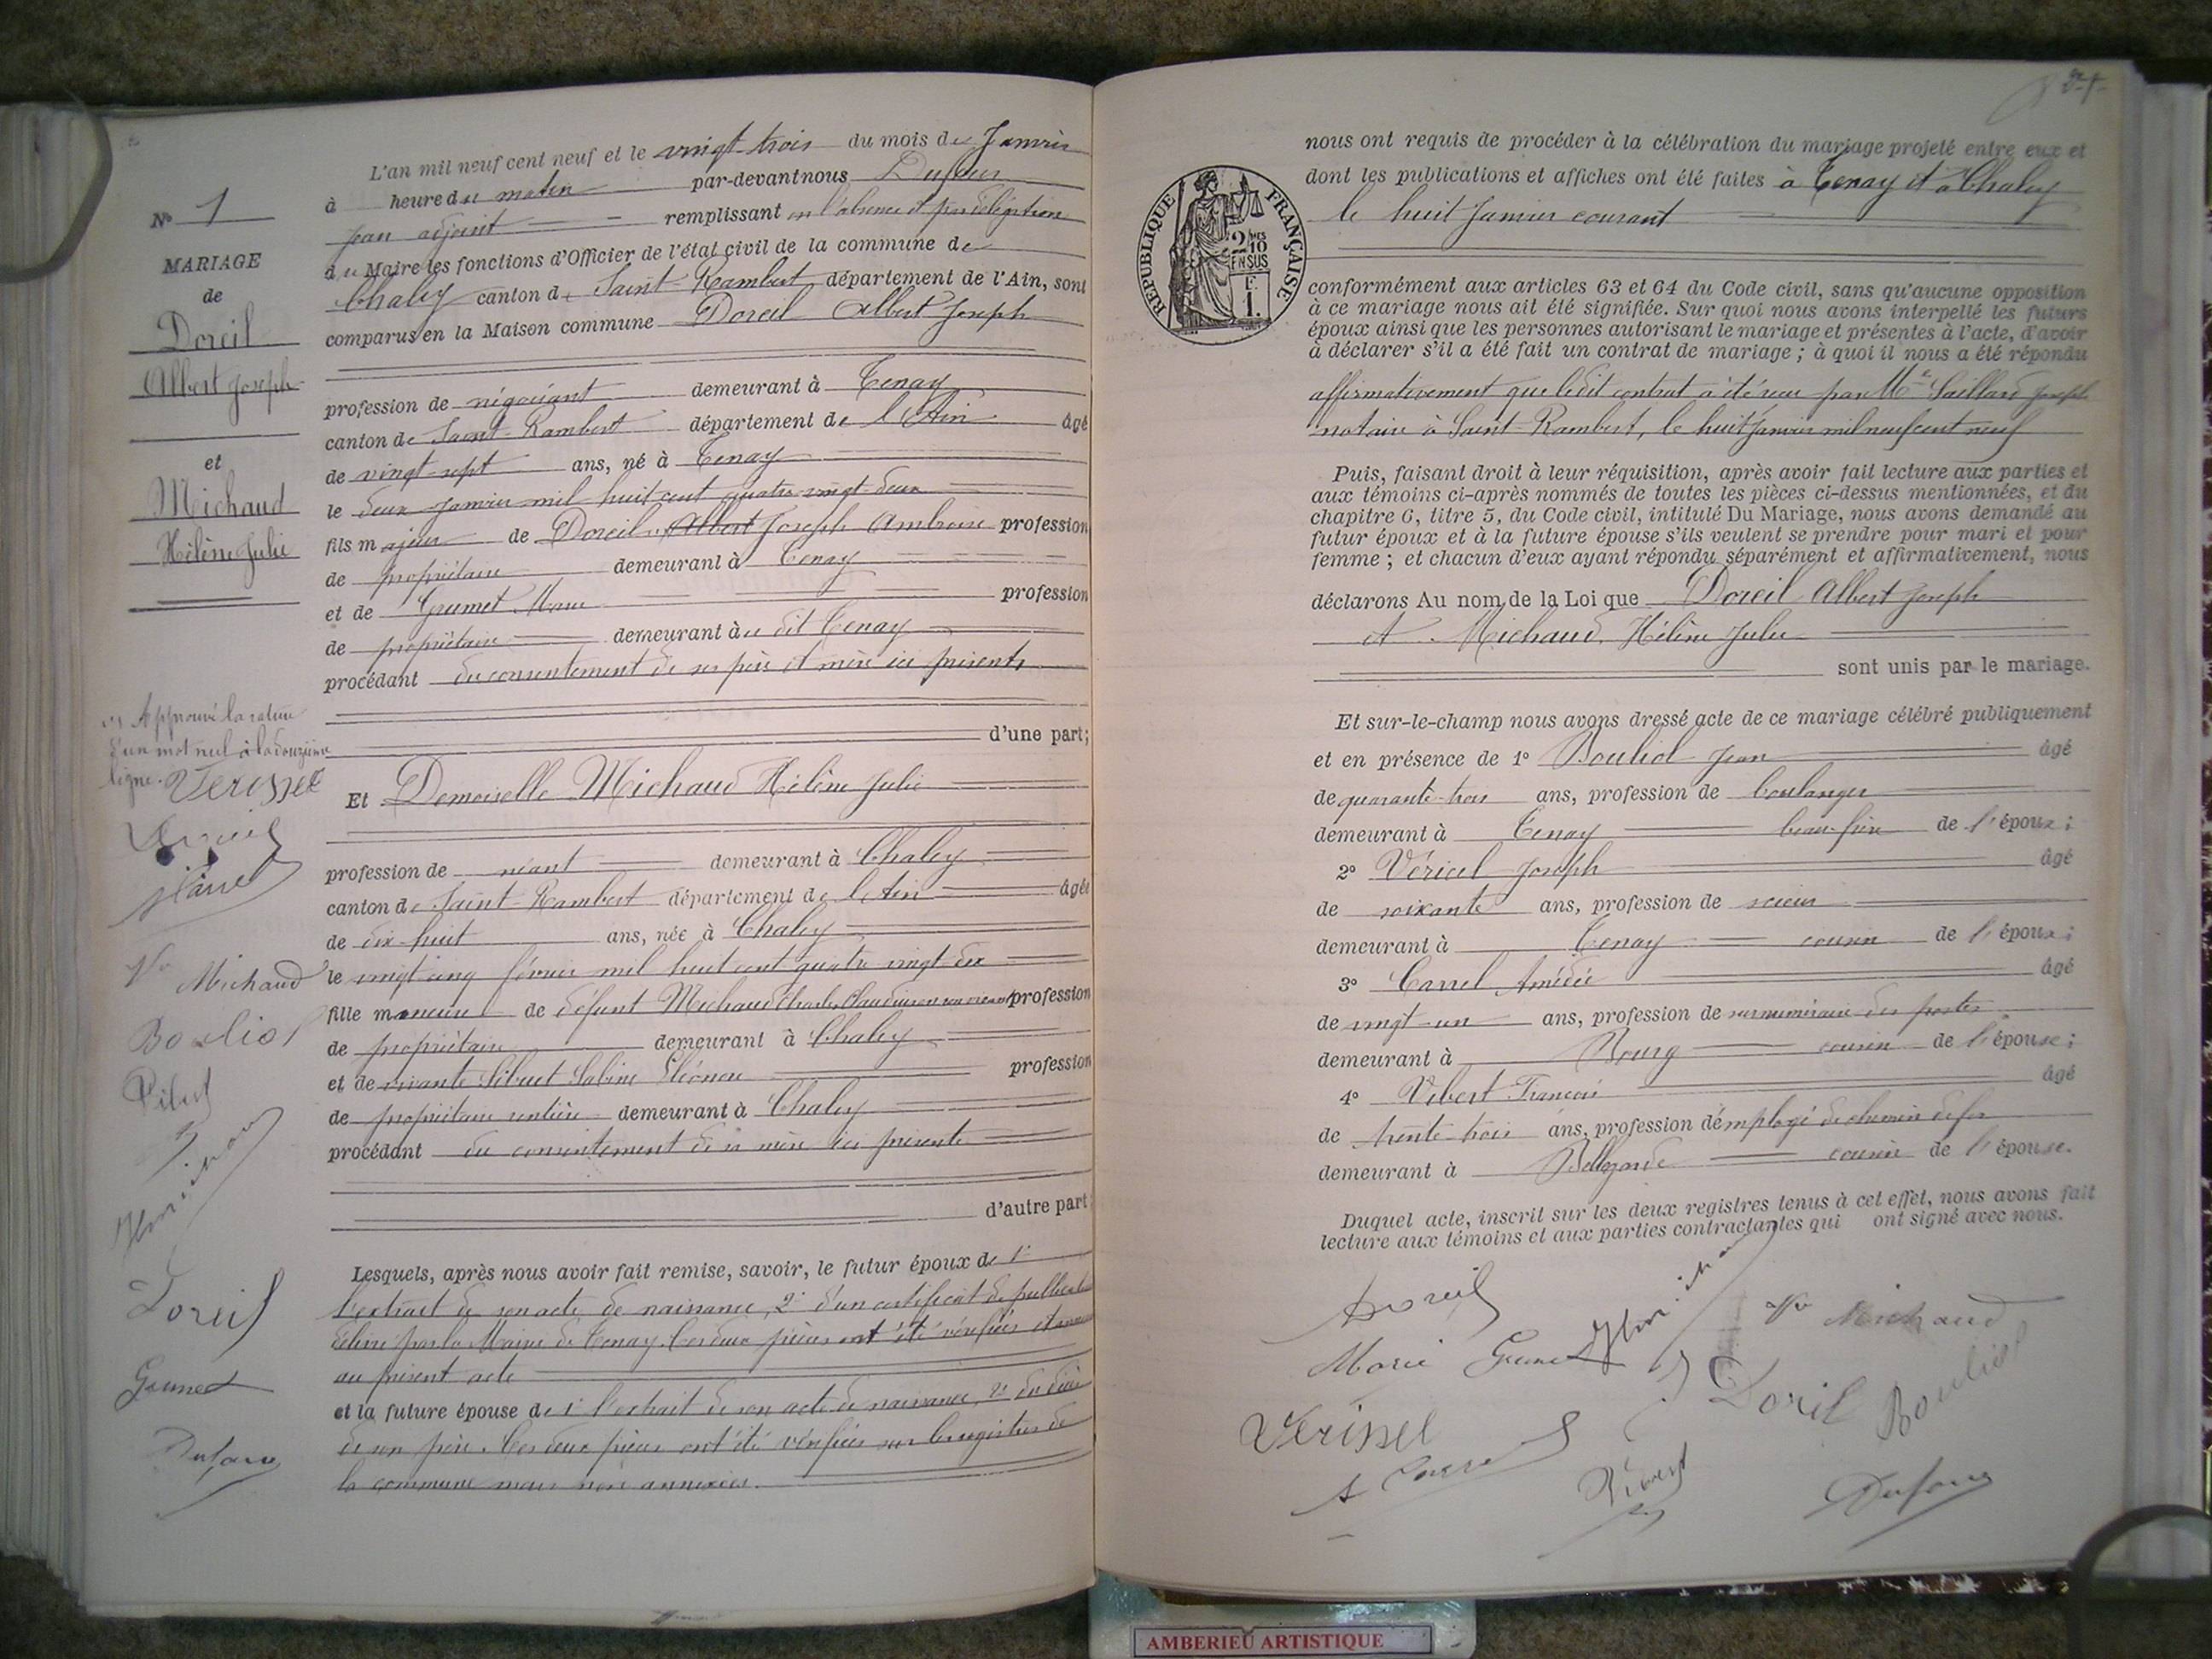 L'an mil neuf cent neuf et le vingt-trois du mois de Janvier
à heure du matin par-devant nous Dufour
Jean adjoint remplissant en l'absence et par délégation
du Maire les fonctions d'Officier de l'état civil de la commune de
Chaley canton de Saint-Rambert département de l'Ain, sont
comparus en la Maison commune Doreil Albert Joseph
profession de négociant demeurant à Tenay
canton de Saint-Rambert département de l'Ain âgé
de vingt-sept ans, né à Tenay
le deux Janvier mil huit cent quatre-vingt-deux
fils majeur de Doreil Albert Joseph Ambroise profession
de propriétaire demeurant à Tenay
et de Grumet Marie profession
de propriétaire demeurant au dit Tenay
procédant du consentement de ses père et mère ici présents
d'une part;
Et Demoiselle Michaud Hélène Julie
profession de néant demeurant à Chaley
canton de Saint-Rambert département de l'Ain âgée
de dix-huit ans, née à Chaley
le vingt cinq février mil huit cent quatre vingt-dix
fille mineure de défunt Michaud Charles Claudius en son vivant profession
de propriétaire demeurant à Chaley
et de vivante Sibuet Sabine Eléonore profession
de propriétaire rentière demeurant à Chaley
procédant du consentement de sa mère ici présente
d'autre part;
Lesquels, après nous avoir fait remise, savoir, le futur époux de 1°
l'extrait de son acte de naissance, 2° d'un certificat de publication
délivré par la Mairie de Tenay. Ces deux pièces ont été vérifiées et annexées
au présent acte
et la future épouse de 1° l'extrait de son acte de naissance, 2° du décès
de son père. Ces deux pièces ont été vérifiées sur les registres de
la commune mais non annexées.
N° 1
MARIAGE
de
Doreil
Albert Joseph
et
Michaud
Hélène Julie
Approuvé la rature
d'un mot nul à la douzième
ligne. Verissel
Doreil
Vve Michaud
Bouliol
Doreil
Grumet
Dufour
nous ont requis de procéder à la célébration du mariage projeté entre eux et
dont les publications et affiches ont été faites à Tenay et à Chaley
le huit Janvier courant
RÉPUBLIQUE FRANÇAISE
2 10MES
EN SUS
F.
1.
conformément aux articles 63 et 64 du Code civil, sans qu'aucune opposition
à ce mariage nous ait été signifiée. Sur quoi nous avons interpellé les futurs
époux ainsi que les personnes autorisant le mariage et présentes à l'acte, d'avoir
à déclarer s'il a été fait un contrat de mariage ; à quoi il nous a été répondu
affirmativement que ledit contrat a été reçu par Me Saillard Joseph
notaire à Saint-Rambert, le huit Janvier mil neuf cent neuf
Puis, faisant droit à leur réquisition, après avoir fait lecture aux parties et
aux témoins ci-après nommés de toutes les pièces ci-dessus mentionnées, et du
chapitre 6, titre 5, du Code civil, intitulé Du Mariage, nous avons demandé au
futur époux et à la future épouse s'ils veulent se prendre pour mari et pour
femme ; et chacun d'eux ayant répondu séparément et affirmativement, nous
déclarons Au nom de la Loi que Doreil Albert Joseph
et Michaud Hélène Julie
sont unis par le mariage.
Et sur-le-champ nous avons dressé acte de ce mariage célébré publiquement
et en présence de 1° Bouliol Jean âgé
de quarante-trois ans, profession de boulanger
demeurant à Tenay beau-frère de l'époux ;
2° Véricel Joseph âgé
de soixante ans, profession de scieur
demeurant à Tenay cousin de l'époux ;
3° Carrel Amédée âgé
de vingt-un ans, profession de surnuméraire des postes
demeurant à Bourg cousin de l'épouse ;
4° Vibert François âgé
de trente-trois ans, profession d'employé de chemin de fer
demeurant à Bellegarde cousin de l'épouse.
Duquel acte, inscrit sur les deux registres tenus à cet effet, nous avons fait
lecture aux témoins et aux parties contractantes qui ont signé avec nous.
Doreil
Vve Michaud
Marie Grumet
Doreil Bouliol
Verissel
Dufour
AMBERIEU ARTISTIQUE